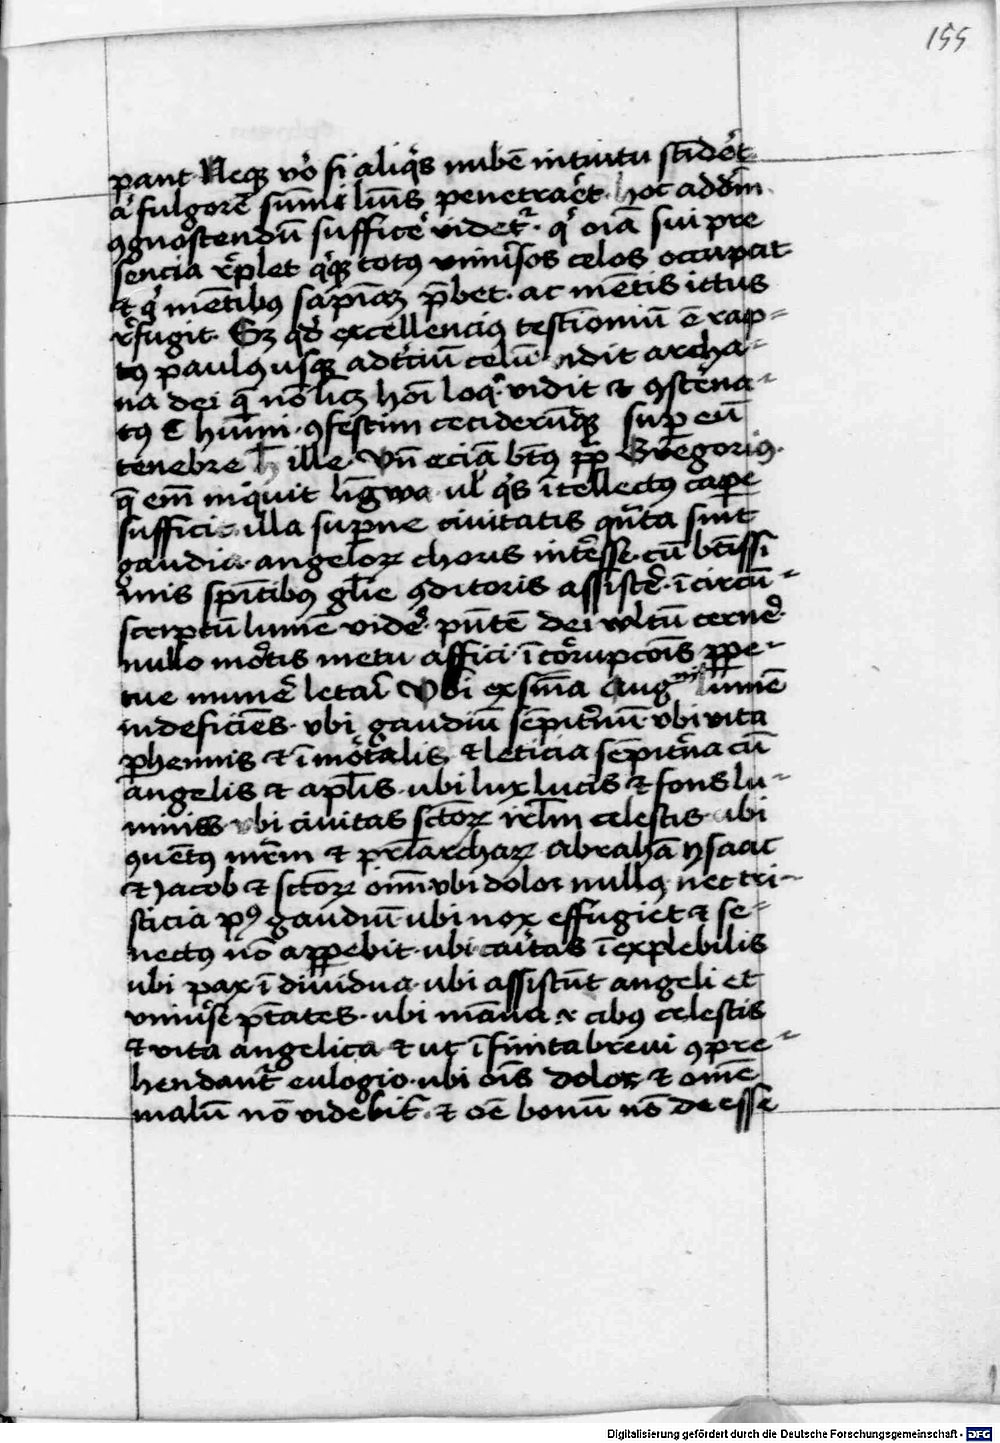 155
pant Neq; vo᷎ si aliq̃s nubē intuitu scid᷎et
a᷎ fulgorē sūmi lūis penetra᷎et hoc add᷎m
ꝯgnoscendū suffice᷎ videt᷎ · q᷎ oīa sui pre
sencia r᷎plet q᷎q; totus vniu᷎sos celos occupat
⁊ q᷎ mētibꝰ sapīaꝫ p̄bet · ac mētis ictus
r᷎fugit · Sꝫ qd᷎ excellenciꝰ testioniū ē rap-
tꝰ paulꝰ usq; ad t᷎ciū celū vidit archa-
na dei q̄ nō licꝫ hoī loq᷎ vidit ⁊ ꝯst᷎na-
tꝰ ē humi · ꝯfestim cecideruntq; suꝑ eū
tenebre h̄ ille · Vn̄ eciā bt̄ꝰ pp̄ Gregoriꝰ ·
q̄ em̄ inq᷎t līgwa · ul᷎ q᷎s ītellectꝰ caꝑe
sufficit illa suꝑne ciuitatis qn̄ta sint
gaudia · angeloꝝ choris int᷎esse · cū bt̄issi
mis spīᷓtibꝰ gl̄ie ꝯditoris assist᷎e · ī circū-
scriptū lumē vide᷎ · pn̄tē dei vultū cerne᷎
nullo mo᷎tis metu affici · īco᷎rupcōis ꝑpe-
tue mune᷎ letari Vbi ex sn̄ia Augᵐⁱ lumē
indeficiēs · vbi gaudiū sēpit᷎nū vbi vita
ꝑhennis ⁊ īmo᷎talis ⁊ leticia sēpit᷎na cū
angelis ⁊ apl̄is · ubi lux lucis ⁊ fons lu-
minis vbi ciuitas sctōꝝ irl̄m celestis · ubi
ꝯuētꝰ mr̄m ⁊ pr̄iarchaꝝ Abrahā ysaac
⁊ Jacob ⁊ sctōꝝ oīm · vbi dolor nullꝰ nec tri-
sticia pꝰ gaudiū · ubi nox effugiet ⁊ se-
nectꝰ nō apꝑebit · ubi ca᷎itas īexplebilis
ubi pax īdiuidua · ubi assistūt angeli et
vniu᷎se pt̄ates · ubi māna ⁊ cibꝰ celestis
⁊ vita angelica ⁊ ut īfinita breui ꝯpre-
hendant᷎ eulogio · ubi oīs dolor ⁊ omē
malū nō videbit᷎ · ⁊ oē bonū nō deesse
Digitalisierung gefördert durch die Deutsche Forschungsgemeinschaft - DFG